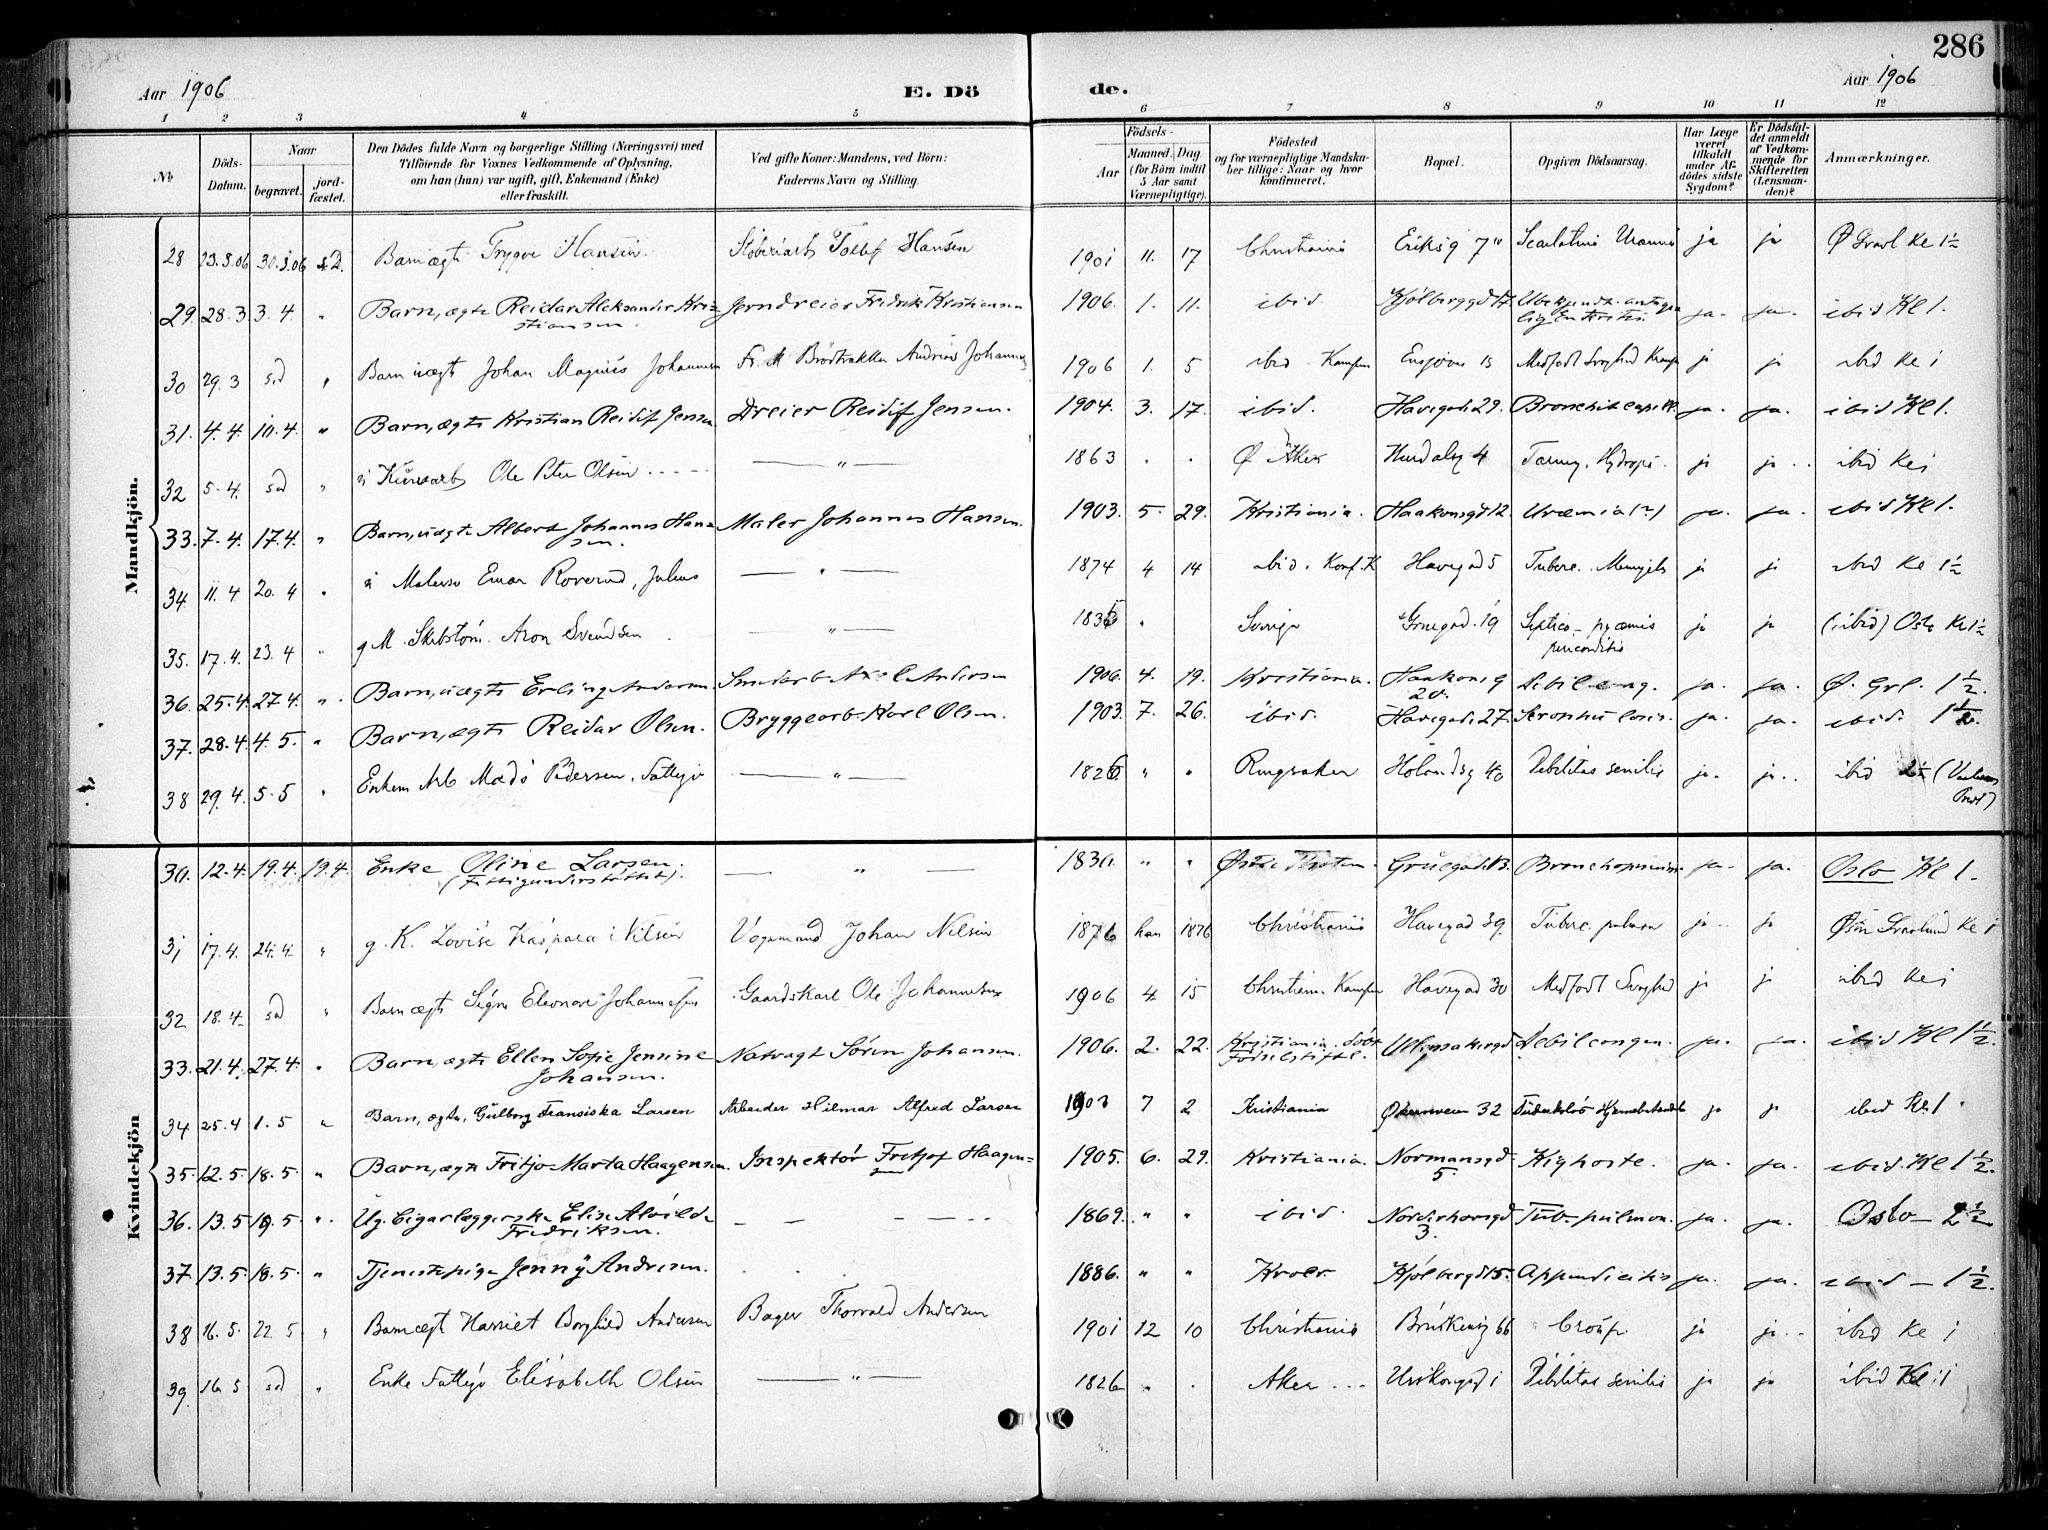 286
Aar 1906
E. Dö
de.
Aar 1906
1 2 3 4 5 6 7 8 9 10 11 12
No
Döds-
Datum.
Naar
begravet.
jord-
fæstet.
Den Dödes fulde Navn og borgerlige Stilling (Næringsvei) med
Tilföiende for Voxnes Vedkommende af Oplysning,
om han (hun) var ugift, gift, Enkemand (Enke)
eller fraskilt.
Ved gifte Koner: Mandens, ved Börn:
Faderens Navn og Stilling.
Födsels-
Aar
Maaned. Dag.
(for Börn indtil
5 Aar samt
Værnepligtige).
Födested
og for værnepligtige Mandska-
ber tillige: Naar og hvor
konfirmeret.
Bopæl.
Opgiven Dödsaarsag.
Har Læge
været
tilkaldt
under Af-
dödes sidste
Sygdom?
Er Dödsfal-
det anmeldt
af Vedkom-
mende for
Skifteretten
(Lensman-
den)?
Anmærkninger.
Mandkjön.
28 23.3.06 30.3.06 s.D. Barn ægte Trygve Hansen. Hansen 1901 11. 17 Christiania Eriksg 7" ja ja Ø Gravl Kl 1½
29. 28.3 3.4. " Barn, ægte Reidar Aleksander Kri-
stiansen. Jerndreier Fridrik Kristiansen 1906. 1. 11. ibid. Kjølberggd 17 ja. ja. ibid Kl 1.
30 29.3 sed " Barn uægt Johan Magnus Johannesen 1906 1. 5 ibid. Kampen Ensjøvn 15 ja ja ibid Kl 1
31. 4.4. 10.4. " Barn, ægte Kristian Reidif Jensen Dreier Reidif Jensen. 1904. 3. 17 ibid. Havegade 29. ja. ja. ibid Kl 1.
32 5.4. sed " Ole Peter Olsen — " — 1863 . . Ø Aker Hurdalsg 4 ja ja. ibid Kl 1
33. 7.4. 17.4. " Barn, uægte Albert Johannes Han-
sen. Maler Johannes Hansen. 1903. 5. 29. Kristiania. Haakonsgd 12. Uræmia (?) ja. ja. ibid Kl 1.
34 11.4 20.4 " Julius — " — 1874 4 14 ibid. Konf. K Havegad 5 Tuberc. ja ja ibid Kl 1½
35. 17.4. 23.4 " g M. Aron Svendsen — " — 1835 " Sverige Gruegad. 19 Septico-pyæmia ja ja (ibid) Oslo Kl 1½
36. 25.4. 27.4. ". Barn, uægte Erling Andersen. Smedarb. Axel Andersen 1906. 4. 19. Kristiania. Haakonsg
20. Debil. cong. ja. ja. Ø. Grl. 1½.
37. 28.4. 4.5. " Barn, ægte Reidar Olsen. Bryggearb. Karl Olsen. 1903. 7. 26. ibid. Havegade 27. ja. ja. ibid. 1½.
38 29.4. 5.5 " Enkem Arb Pedersen, Fattigu — " — 1826 " " Ringsaker Hølandsg 40 Debilitas senilis ja. ja.. ibid
Kvindekjön
30. 12.4. 19.4. 19.4. Enke Oline Larsen.
(Fattigunderstøttet). — " — 1830. " " Østre Thoten. Gruegad. 13. ja. ja. Oslo Kl 1.
31 17.4. 24.4. " g. K. Lovise Kaspara Nilsen Vognmand Johan Nilsen 1876 han 1876 Christiania Havegad 39. Tuberc. pulmon ja. ja Kl 1
32 18.4. sd " Barn ægt Signe Eleonore Johannesen Gaardskarl Ole Johannesen 1906 4. 15 Christiania. Kampen Havegad 30 Medfødt Svaghed ja ja ibid Kl 1
33. 21.4. 27.4. " Barn, ægte Ellen Sofie Jensine
Johansen. Natvagt Søren Johansen. 1906. 2. 22. Kristiania.
Fødselsstift. Debil congen. ja. ja. ibid Kl 1½.
34 25.4 1.5 " Barn, ægte, Gulborg Fransiska Larsen Arbeider Hilmar Alfred Larsen 1903 7 2 Kristiania Økernveien 32 Tuberkuløs ja ja ibid Kl. 1.
35. 12.5. 18.5. " Barn, ægte Fritjo Marta Haagensen. Inspektør Fritjof Haagen-
sen 1905. 6. 29. Kristiania. Normansgd.
5. Kighoste. ja. ja. ibid. Kl 1½.
36. 13.5 19.5 ". Ug. Cigarlæggerske Elise Alvilde
Fredriksen. — — — — 1869. " " ibid. Norderhovsgd
3. Tub. pulmon. ja. ja. Oslo — 2½
37. 13.5. 18.5. " Tjenestepige Jenny Andresen. . . 1886. " " Kroer Kjølberggd 15. Appendicitis ja. ja. ibid — 1½.
38 16.5. 22.5 " Barn ægt Harriet Borghild Andersen Bager Thorvald Andersen 1901 12 10 Christiania 66 Croup ja ja.. ibid Kl 1
39. 16.5 sd " Enke Fattigu Elisabeth Olsen — " — 1826 " . Aker ... 1 Debilitas senilis ja ja ibid Kl 1